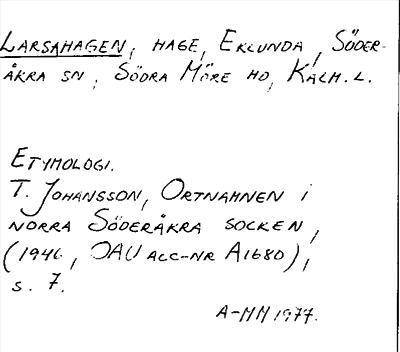 LARSAHAGEN, HAGE, EKLUNDA, SÖDER-
ÅKRA SN, SÖDRA MÖRE HD, KALM. L.
ETYMOLOGI.
T. JOHANSSON, ORTNAMNEN I
NORRA SÖDERÅKRA SOCKEN,
(1946, OAU ACC-NR A1680),
S. 7.
A-MM 1977.